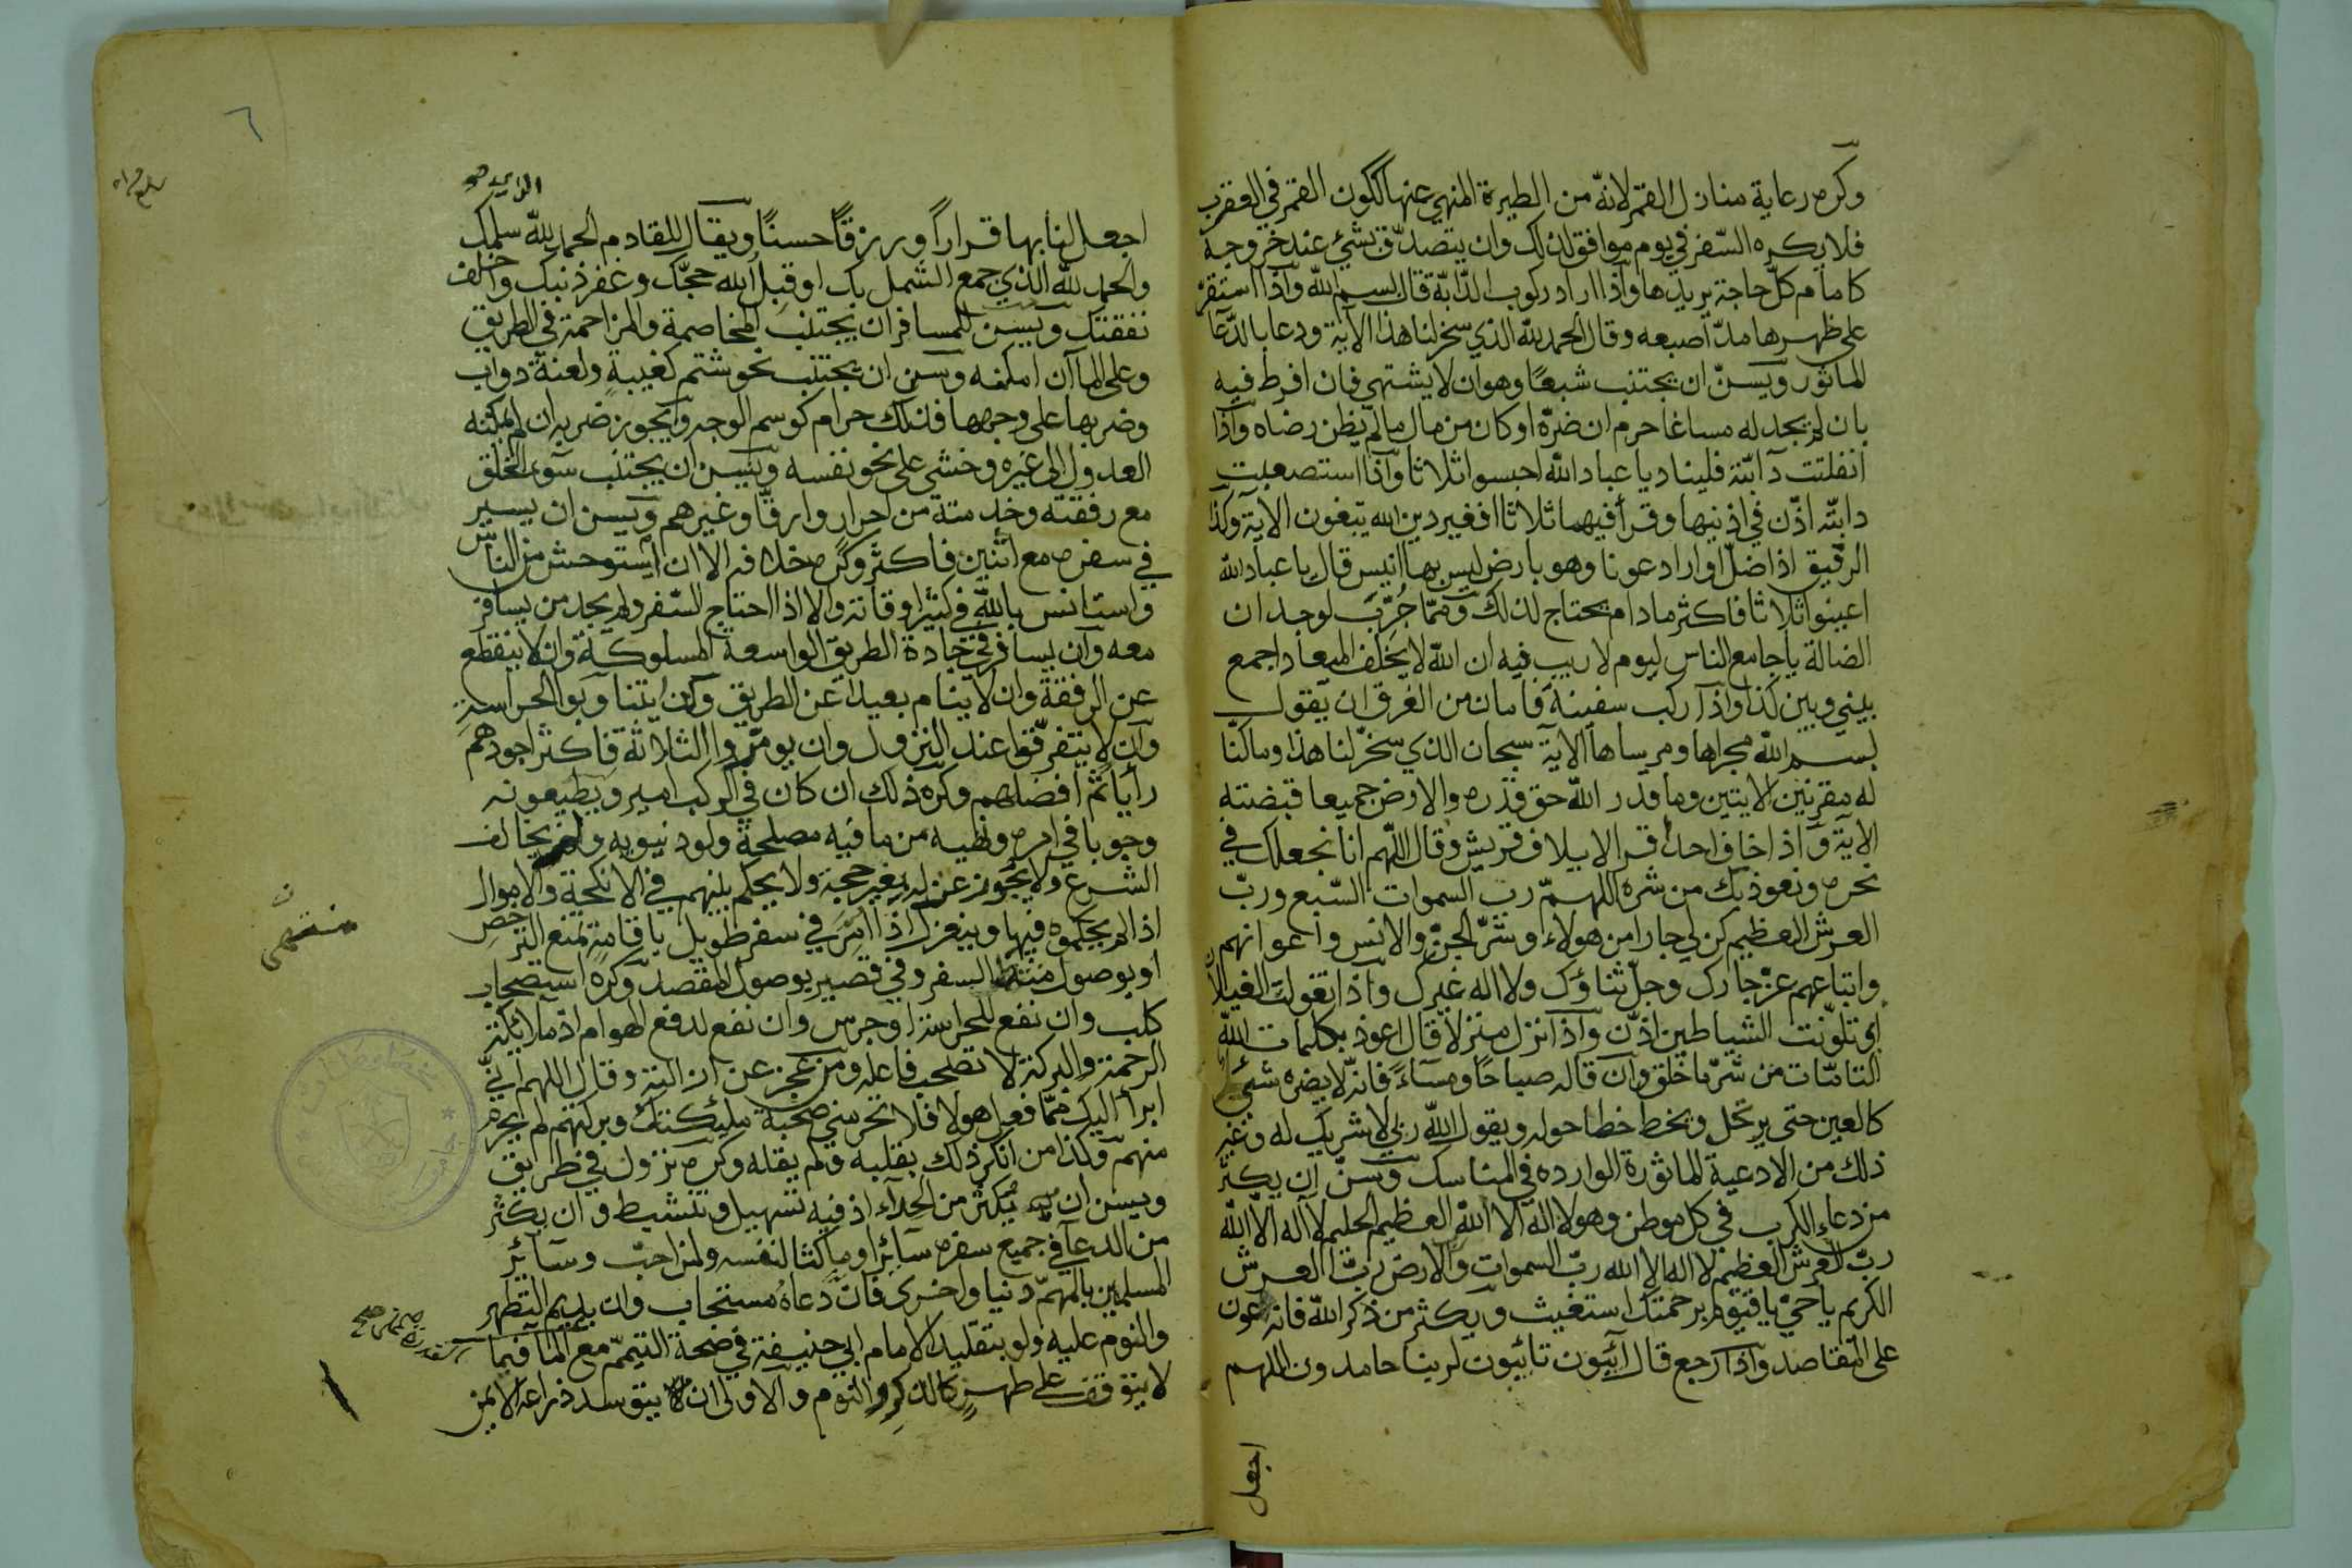 وكره رعاية منازل القمر لانه من الطيرة المنهي عنها ككون القمر في العقرب
فلا يكره السفر في يوم موافق لذلك وان يتصدق بشئ عند خروجه
كامام كل حاجة يريدها واذا اراد ركوب الدابة قال بسم الله واذا استقر
على ظهرها مد اصبعه وقال الحمد لله الذي سخر لنا هذا الاية ودعا بالدعآ
الماثور ويسن ان يجتنب شبعا وهو ان لا يشتهي فان افرط فيه
بان لم يجد له مساغا حرم ان ضره او كان من مال ما لم يظن رضاه واذا
انفلتت دآبته فلينادي يا عباد الله احبسوا ثلاثا واذا استصعبت
دابته اذن في اذنيها وقرأ فيهما ثلاثا افغير دين الله يبغون الاية وكذا
الرقيق اذا ضل او اراد عونا وهو بارض ليس بها انيس قال يا عباد الله
اعينوا ثلاثا فاكثر مادام يحتاج لذلك ومما جُرّب لوجدان
الضالة يا جامع الناس ليوم لا ريب فيه ان الله لا يخلف الميعاد اجمع
بيني وبين كذا واذا ركب سفينة فامان من الغرق ان يقول
بسم الله مجراها ومرساها الاية سبحان الذي سخر لنا هذا وماكنا
له مقرنين الايتين وما قدر الله حق قدره والارض جميعا قبضته
الاية واذا خاف احدا قرا لايلاف قريش وقال اللهم انا نجعلك في
نحره ونعوذ بك من شره اللهم رب السموات السبع ورب
العرش العظيم كن لي جارا من هولاء او شر الجن والانس واعوانهم
واتباعهم عز جارك وجل ثناؤك ولا اله غيرك واذا تغولت الغيلان
اي تلونت الشياطين اذن واذا نزل منزلا قال اعوذ بكلمات الله
التامات من شر ما خلق وان قاله صباحا ومساءً فانه لا يضره شئ
كالعين حتى يرتحل ويخط خطا حوله ويقول الله ربي لا شريك له وغير
ذلك من الادعية الماثورة الوارده في المناسك ويسن ان يكثر
من دعاء الكرب في كل موطن وهو لا اله الا الله العظيم الحليم لا اله الا الله
رب العرش العظيم لا اله الا الله رب السموات والارض رب العرش
الكريم يا حي يا قيوم برحمتك استغيث ويكثر من ذكر الله فانه عون
على المقاصد واذا رجع قال آئبون تائبون لربنا حامدون اللهم
اجعل
٦
اجعل لنا بها قرارًا ورزقًا حسنًا ويقال للقادم الحمد لله سلمك
والحمد لله الذي جمع الشمل بك او قبل الله حجك وغفر ذنبك واخلف
نفقتك ويسن للمسافر ان يجتنب المخاصمة والمزاحمة في الطريق
وعلى المآ ان امكنه ويسن ان يجتنب نحو شتم كغيبة ولعنة دواب
وضربها على وجهها فذلك حرام كوسم الوجه ويجوز ضربه ان لم يمكنه
العدول الى غيره وخشي على نحو نفسه ويسن ان يجتنب سوء الخلق
مع رفقته وخدمته من احرار وارقا وغيرهم ويسن ان يسير
في سفره مع اثنين فاكثر وكره خلافه الا ان استوحش من الناس
واستانس بالله في كثير اوقاته والا اذا احتاج السفر ولم يجد من يسافر
معه وان يسافر في جادة الطريق الواسعة المسلوكة وان لا ينقطع
عن الرفقة وان لا ينام بعيدا عن الطريق وان يتناوبوا الحراسة
وان لا يتفرقوا عند النزول وان يومروا الثلاثة فاكثر اجودهم
رأيا ثم افضلهم وكره ذلك ان كان في الركب امير ويطيعونه
وجوبا في امره ونهيه من ما فيه مصلحة ولو دنيويه ولم يخالف
الشرع ولا يجوز عزله بغير حجة ولا يحكم بينهم في الانكحة والاموال
اذا لم يحكموه فيها وينعزل اذا امر في سفر طويل باقامة تمنع الترخص
او بوصول منتهى السفر وفي قصير بوصول المقصد وكره استصحاب
كلب وان نفع للحراسة او جرس وان نفع لدفع الهوام اذ ملائكة
الرحمة والبركة لا تصحب فاعله ومن عجز عن ازالته وقال اللهم اني
ابرأ اليك مما فعل هولا فلا تحرمني صحبة مليكتك وبركتهم لم يحرم
منهم وكذا من انكر ذلك بقلبه ولم يقله وكره نزول في طريق
ويسن ان يكثر من الحدآء اذ فيه تسهيل وتنشيط وان يكثر
من الدعآ في جميع سفره سائرا وماكثا لنفسه ولمن احب وسائر
المسلمين بالمهم دنيا واخرى فان دعاه مستجاب وان يديم التطهر
والنوم عليه ولو بتقليد الامام ابي حنيفة في صحة التيمم مع المآ فيما
لا يتوقف على طهر كالذكر والنوم والاولى ان لا يتوسد ذراعه الايمن
منتهى